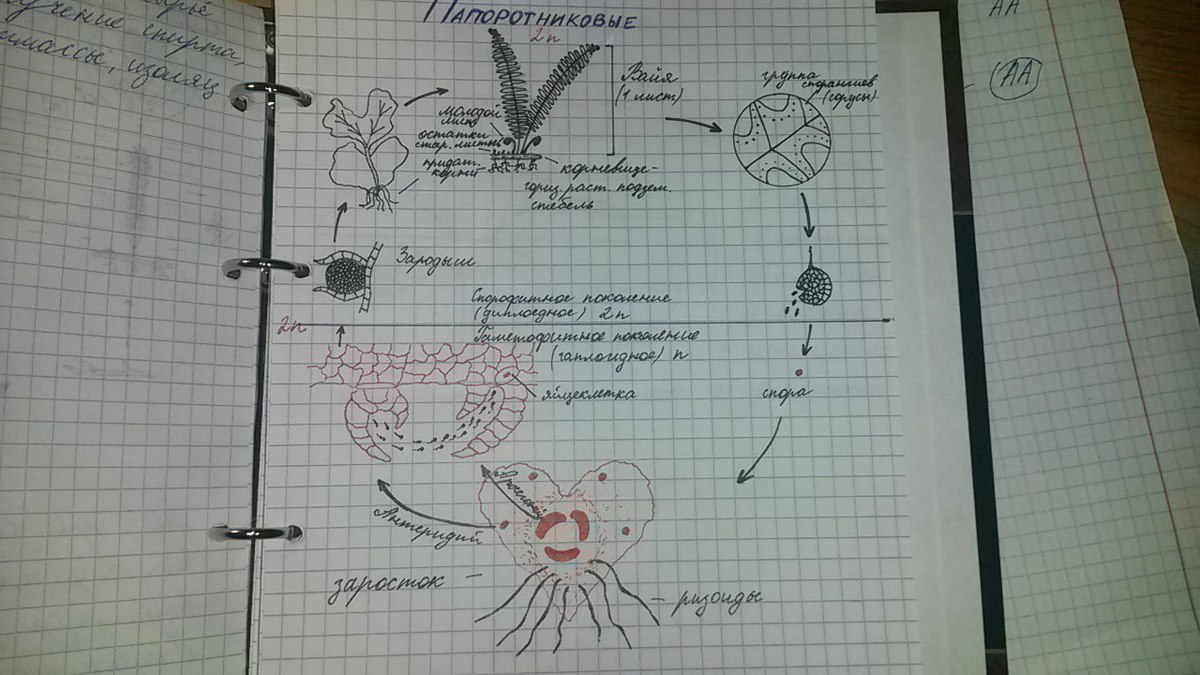 лучение спирта,
имассы, изоляц
Папоротниковые
2n
Вайя
(1 лист)
группа
спорангиев
(сорусы)
молодой
лист
остатки
стар. листьев
придат.
корни
корневище-
гориз. раст. подзем.
стебель
Зародыш
Спорофитное поколение
(диплоидное) 2n
2n
Гаметофитное поколение
(гаплоидное) n
яйцеклетка
спора
Архегоний
Антеридий
заросток
ризоиды
АА
АА